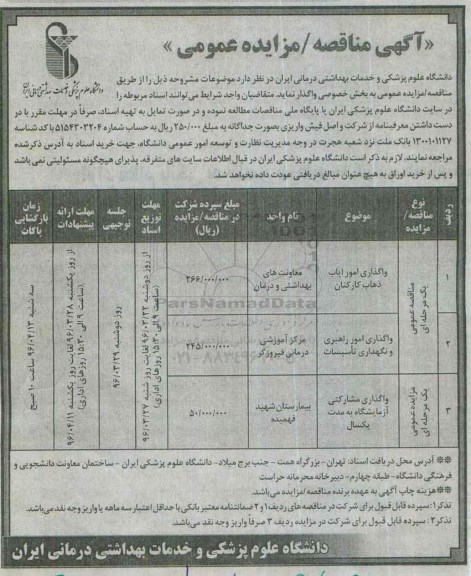 «آگهی مناقصه/مزایده عمومی»
دانشگاه علوم پزشکی و خدمات بهداشتی درمانی ایران
دانشگاه علوم پزشکی و خدمات بهداشتی درمانی ایران در نظر دارد موضوعات مشروحه ذیل را از طریق
مناقصه/مزایده عمومی به بخش خصوصی واگذار نماید. متقاضیان واجد شرایط می‌توانند اسناد مربوطه را
در سایت دانشگاه علوم پزشکی ایران یا پایگاه ملی مناقصات مطالعه نموده و در صورت تمایل به تهیه اسناد، صرفاً در مهلت مقرر با در
دست داشتن معرفینامه از شرکت و اصل فیش واریزی بصورت جداگانه به مبلغ ۲۵۰/۰۰۰ ریال به حساب شماره ۵۱۵۴۳۰۳۲۰۴ با کد شناسه
۱۳۰۰۱۰۱۱۲۷ بانک ملت نزد شعبه هجرت در وجه مدیریت نظارت و توسعه امور عمومی دانشگاه، جهت خرید اسناد به آدرس ذکر شده
مراجعه نمایند. لازم به ذکر است دانشگاه علوم پزشکی ایران در قبال اطلاعات سایت های متفرقه، پذیرای هیچگونه مسئولیتی نمی باشد
و پس از خرید اوراق به هیچ عنوان مبالغ دریافتی عودت داده نخواهد شد.
ردیف
نوع مناقصه/ مزایده
موضوع
نام واحد
مبلغ سپرده شرکت در مناقصه/مزایده (ریال)
مهلت توزیع اسناد
جلسه توجیهی
مهلت ارائه پیشنهادات
زمان بازگشایی پاکات
۱
مناقصه عمومی یک مرحله ای
واگذاری امور ایاب ذهاب کارکنان
معاونت های بهداشتی و درمان
۳۶۶/۰۰۰/۰۰۰
از روز دوشنبه ۹۶/۰۳/۲۲ لغایت روز شنبه ۹۶/۰۳/۲۷ (ساعت ۹ الی ۱۵:۳۰ روزهای اداری)
روز دوشنبه ۹۶/۰۳/۲۹
از روز یکشنبه ۹۶/۰۳/۲۸ لغایت روز یکشنبه ۹۶/۰۴/۱۱ (ساعت ۹ الی ۱۵:۳۰ روزهای اداری)
سه شنبه ۹۶/۰۴/۱۳ ساعت ۱۰ صبح
۲
واگذاری امور راهبری و نگهداری تأسیسات
مرکز آموزشی درمانی فیروزگر
۲۴۵/۰۰۰/۰۰۰
۳
مزایده عمومی یک مرحله ای
واگذاری مشارکتی آزمایشگاه به مدت یکسال
بیمارستان شهید فهمیده
۵۰/۰۰۰/۰۰۰
ParsNamadData
** آدرس محل دریافت اسناد: تهران - بزرگراه همت - جنب برج میلاد- دانشگاه علوم پزشکی ایران - ساختمان معاونت دانشجویی و
فرهنگی دانشگاه- طبقه چهارم- دبیرخانه محرمانه حراست
**هزینه چاپ آگهی به عهده برنده مناقصه/مزایده می‌باشد.
تذکر۱: سپرده قابل قبول برای شرکت در مناقصه های ردیف ۱ و ۲ ضمانتنامه معتبر بانکی با حداقل اعتبار سه ماهه یا واریز وجه نقد می‌باشد.
تذکر۲: سپرده قابل قبول برای شرکت در مزایده ردیف ۳ صرفاً واریز وجه نقد می‌باشد.
دانشگاه علوم پزشکی و خدمات بهداشتی درمانی ایران